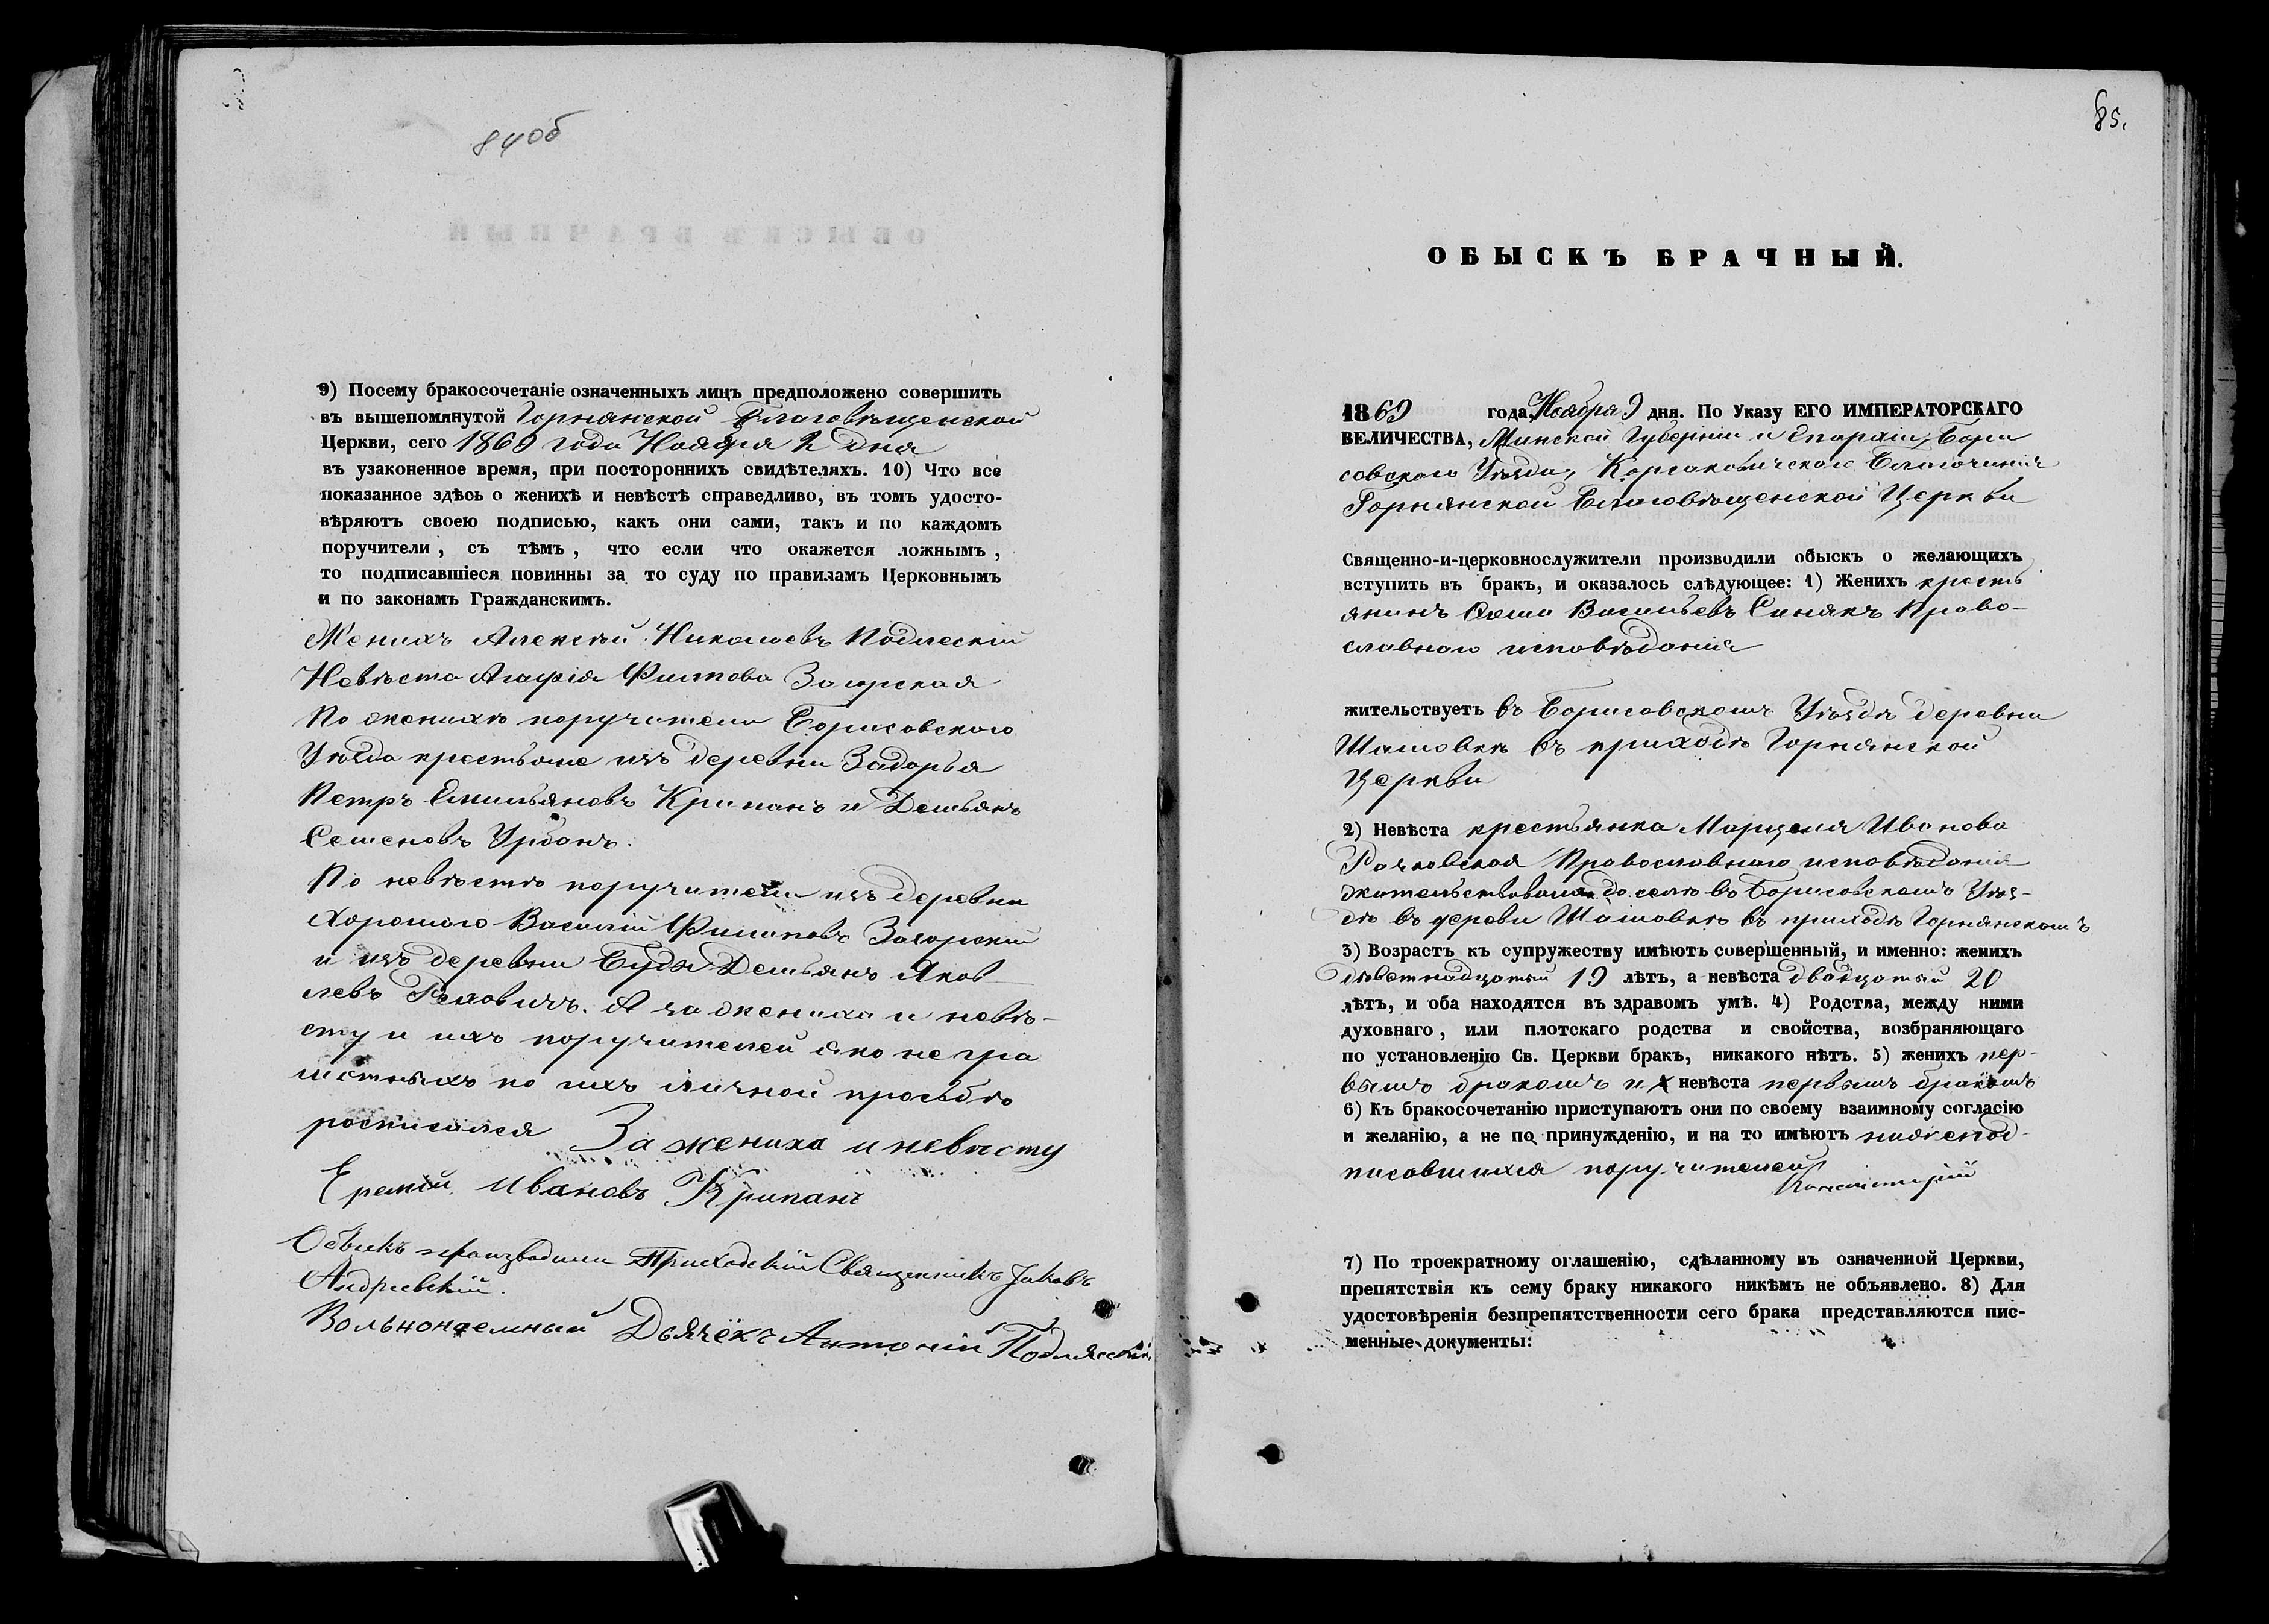 84об
9) Посему бракосочетаніе означенныхъ лицъ предположено совершить
въ вышепомянутой Горнянской Благовѣщенской
Церкви, сего 1869 года Ноября 2 дня
въ узаконенное время, при постороннихъ свидѣтеляхъ. 10) Что все
показанное здѣсь о женихѣ и невѣстѣ справедливо, въ томъ удосто-
вѣряютъ своею подписью, какъ они сами, такъ и по каждомъ
поручители, съ тѣмъ, что если что окажется ложнымъ,
то подписавшіеся повинны за то суду по правиламъ Церковнымъ
и по законамъ Гражданскимъ.
Женихъ Алексѣй Николаевъ
Невѣста Агафія Загорская
По женихѣ поручители Борисовского
Уѣзда крестьяне изъ деревни Задорья
Петръ Емильяновъ Крипанъ и Демьянъ
Семеновъ Урбанъ.
По невѣстѣ поручители изъ деревни
Хорошого Василій Филиповъ Загорскій
и изъ деревни Буда Демьянъ Яков
левъ. А за жениха и невѣ-
сту и ихъ поручителей яко не гра
мотныхъ по ихъ личной просьбѣ
росписался За жениха и невѣсту
Еремѣй Ивановъ Крипанъ
Обыскъ производили Приходскій Священникъ Іаковъ
Андріевскій.
Вольнонаемный Дьячёкъ Антоній Подлясскій
85.
ОБЫСКЪ БРАЧНЫЙ.
1869 года Ноября 9 дня. По Указу ЕГО ИМПЕРАТОРСКАГО
ВЕЛИЧЕСТВА, Минской Губерніи и Епархіи, Бори
совского Уѣзда, Корсаковичского Благочинія
Горнянской Благовѣщенской Церкви
Священно-и-церковнослужители производили обыскъ о желающихъ
вступить въ бракъ, и оказалось слѣдующее: 1) Женихъ кресть
янинъ Васильевъ Синякъ Право-
славного исповѣданія
жительствуетъ въ Борисовскомъ Уѣздѣ деревни
въ приходѣ Горнянской
Церкви
2) Невѣста крестьянка Марцеля Иванова
Рачковская Православного исповѣданія
жительствовала до селѣ въ Борисовскомъ Уѣз-
дѣ въ дереви въ приходѣ Горнянскомъ
3) Возрастъ къ супружеству имѣютъ совершенный, и именно: женихъ
девятнадцатый 19 лѣтъ, а невѣста двадцатый 20
лѣтъ, и оба находятся въ здравомъ умѣ. 4) Родства, между ними
духовнаго, или плотскаго родства и свойства, возбраняющаго
по установленію Св. Церкви бракъ, никакого нѣтъ. 5) женихъ пер-
вымъ бракомъ и невѣста первымъ бракомъ
6) Къ бракосочетанію приступаютъ они по своему взаимному согласію
и желанію, а не по принужденію, и на то имѣютъ нижепод-
писавшихся поручителей
7) По троекратному оглашенію, сдѣланному въ означенной Церкви,
препятствія къ сему браку никакого никѣмъ не объявлено. 8) Для
удостовѣренія безпрепятственности сего брака представляются пис-
менные документы: